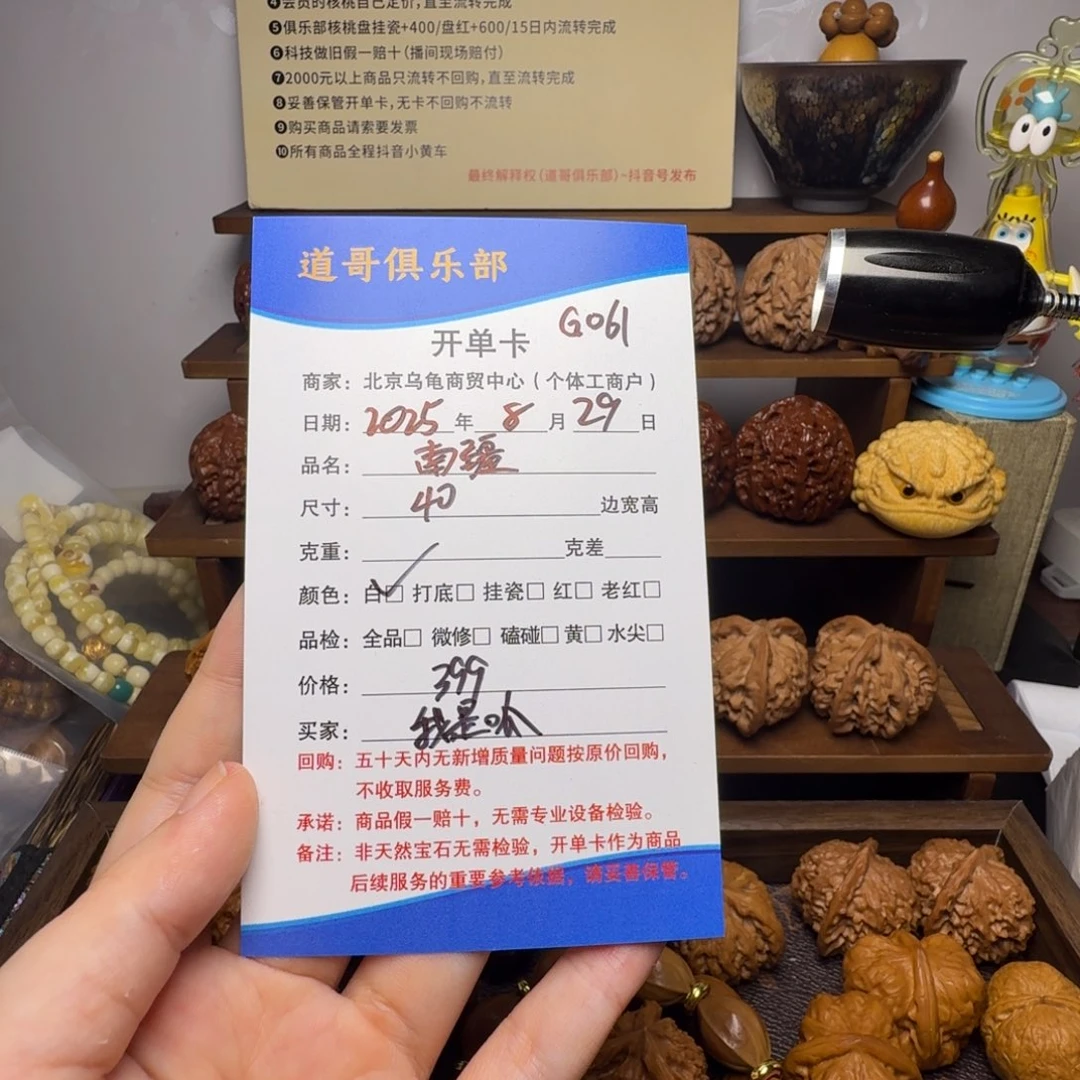 ④会员的核桃自己定价,直至流转完成
⑤俱乐部核桃盘挂瓷+400/盘红+600/15日内流转完成
⑥科技做旧假一赔十(播间现场赔付)
⑦2000元以上商品只流转不回购,直至流转完成
⑧妥善保管开单卡,无卡不回购不流转
⑨购买商品请索要发票
⑩所有商品全程抖音小黄车
最终解释权(道哥俱乐部)~抖音号发布
道哥俱乐部
开单卡 G061
商家：北京乌龟商贸中心（个体工商户）
日期：2025年8月29日
品名：南疆
尺寸：40 边宽高
克重： 克差
颜色：白☑ 打底□ 挂瓷□ 红□ 老红□
品检：全品□ 微修□ 磕碰□ 黄□ 水尖□
价格：399
买家：我是
回购：五十天内无新增质量问题按原价回购，
不收取服务费。
承诺：商品假一赔十，无需专业设备检验。
备注：非天然宝石无需检验，开单卡作为商品
后续服务的重要参考依据，请妥善保管。